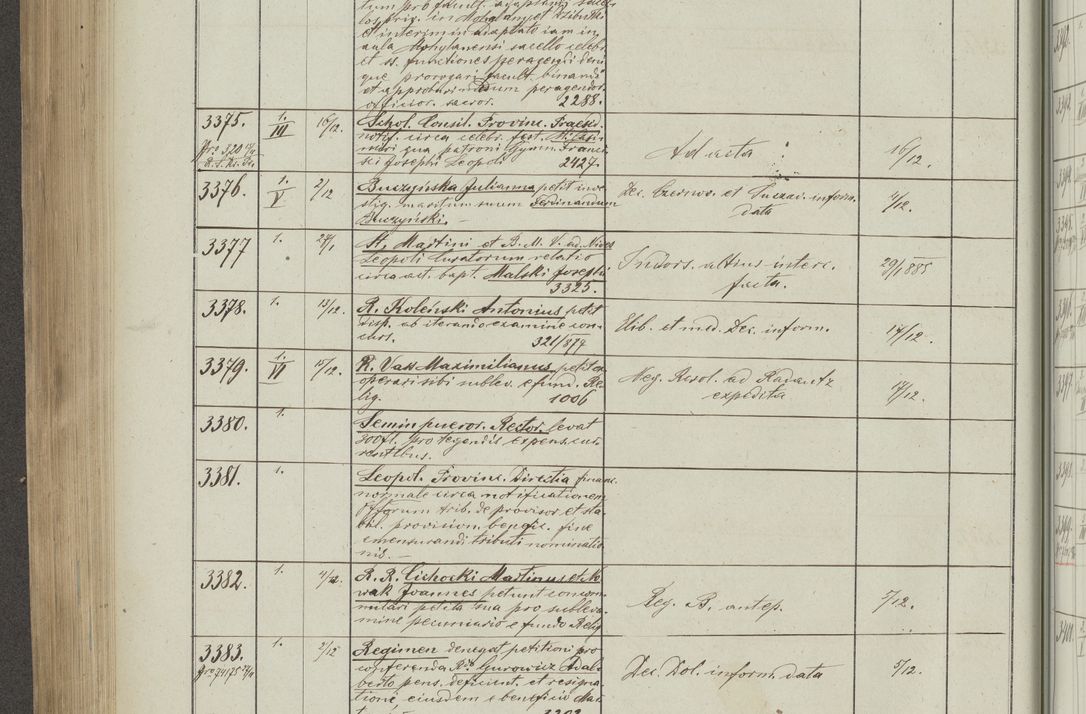 los priv. in Mohylan
et interimin adaptato iam in
aula Mohylanensi sacello celebr.
et ss. functiones peragendi deni
que prorogari facult. binandi
et approbari modum peragendor.
officior. sacror. 2288.
3375. 1. III 16/12. Schol. Consil. Provinc. Praesid.
notif. circa celebr. fest.
sua patroni Gymn. Franci
sci Josephi Leopoli 2427. Ad acta 16/12.
3376. 1. V 2/12 Buczyńska Julianna petit inve
stig. maritum suum Ferdinandum
Buczyński. Dec. Czernov. et Suczav. inform. data 2/12.
3377 1. 29/1 St. Martini et B. M. V. ad Nives
Leopoli Curatorum relatio
circa act. bapt. Malski Josephi
3325. Indors. altius interc. facta. 29/1885
3378. 1. 17/12. R. Koleński Antonius petit
disp. ab iterando examine con
curs. 321/874 Exib. et med. Dec. inform. 17/12.
3379. 1. VI 15/12. R. Vass Maximilianus petit ex
operari sibi sublev. e fund. Re
lig. 1006 Neg. Resol. ad Radautz expedita 17/12.
3380. 1. Semin. pueror. Rector levat
300 fl. pro tegendis expens. cur
rentibus.
3381. 1. Leopol. Provinc. Directio financ.
normale circa notificationem
Offorum trib. de provisor. et sta
bil. provision. benefic. fine
emensurandi tributi nominatio
nis.
3382. 1. 4/12. R. R. Cichocki Martinus et No
wak Joannes petunt comm
petita sua pro subleva
mine pecuniario e fundo Relig. Reg. B. antep. 5/12.
3383. 1. 2/12 Regimen denegat petitioni pro
conferenda Rdo Gurowicz Adal
berto pens. deficient. et resigna
tione eiusdem e beneficio Mar Dec. Dol. inform. data 5/12.